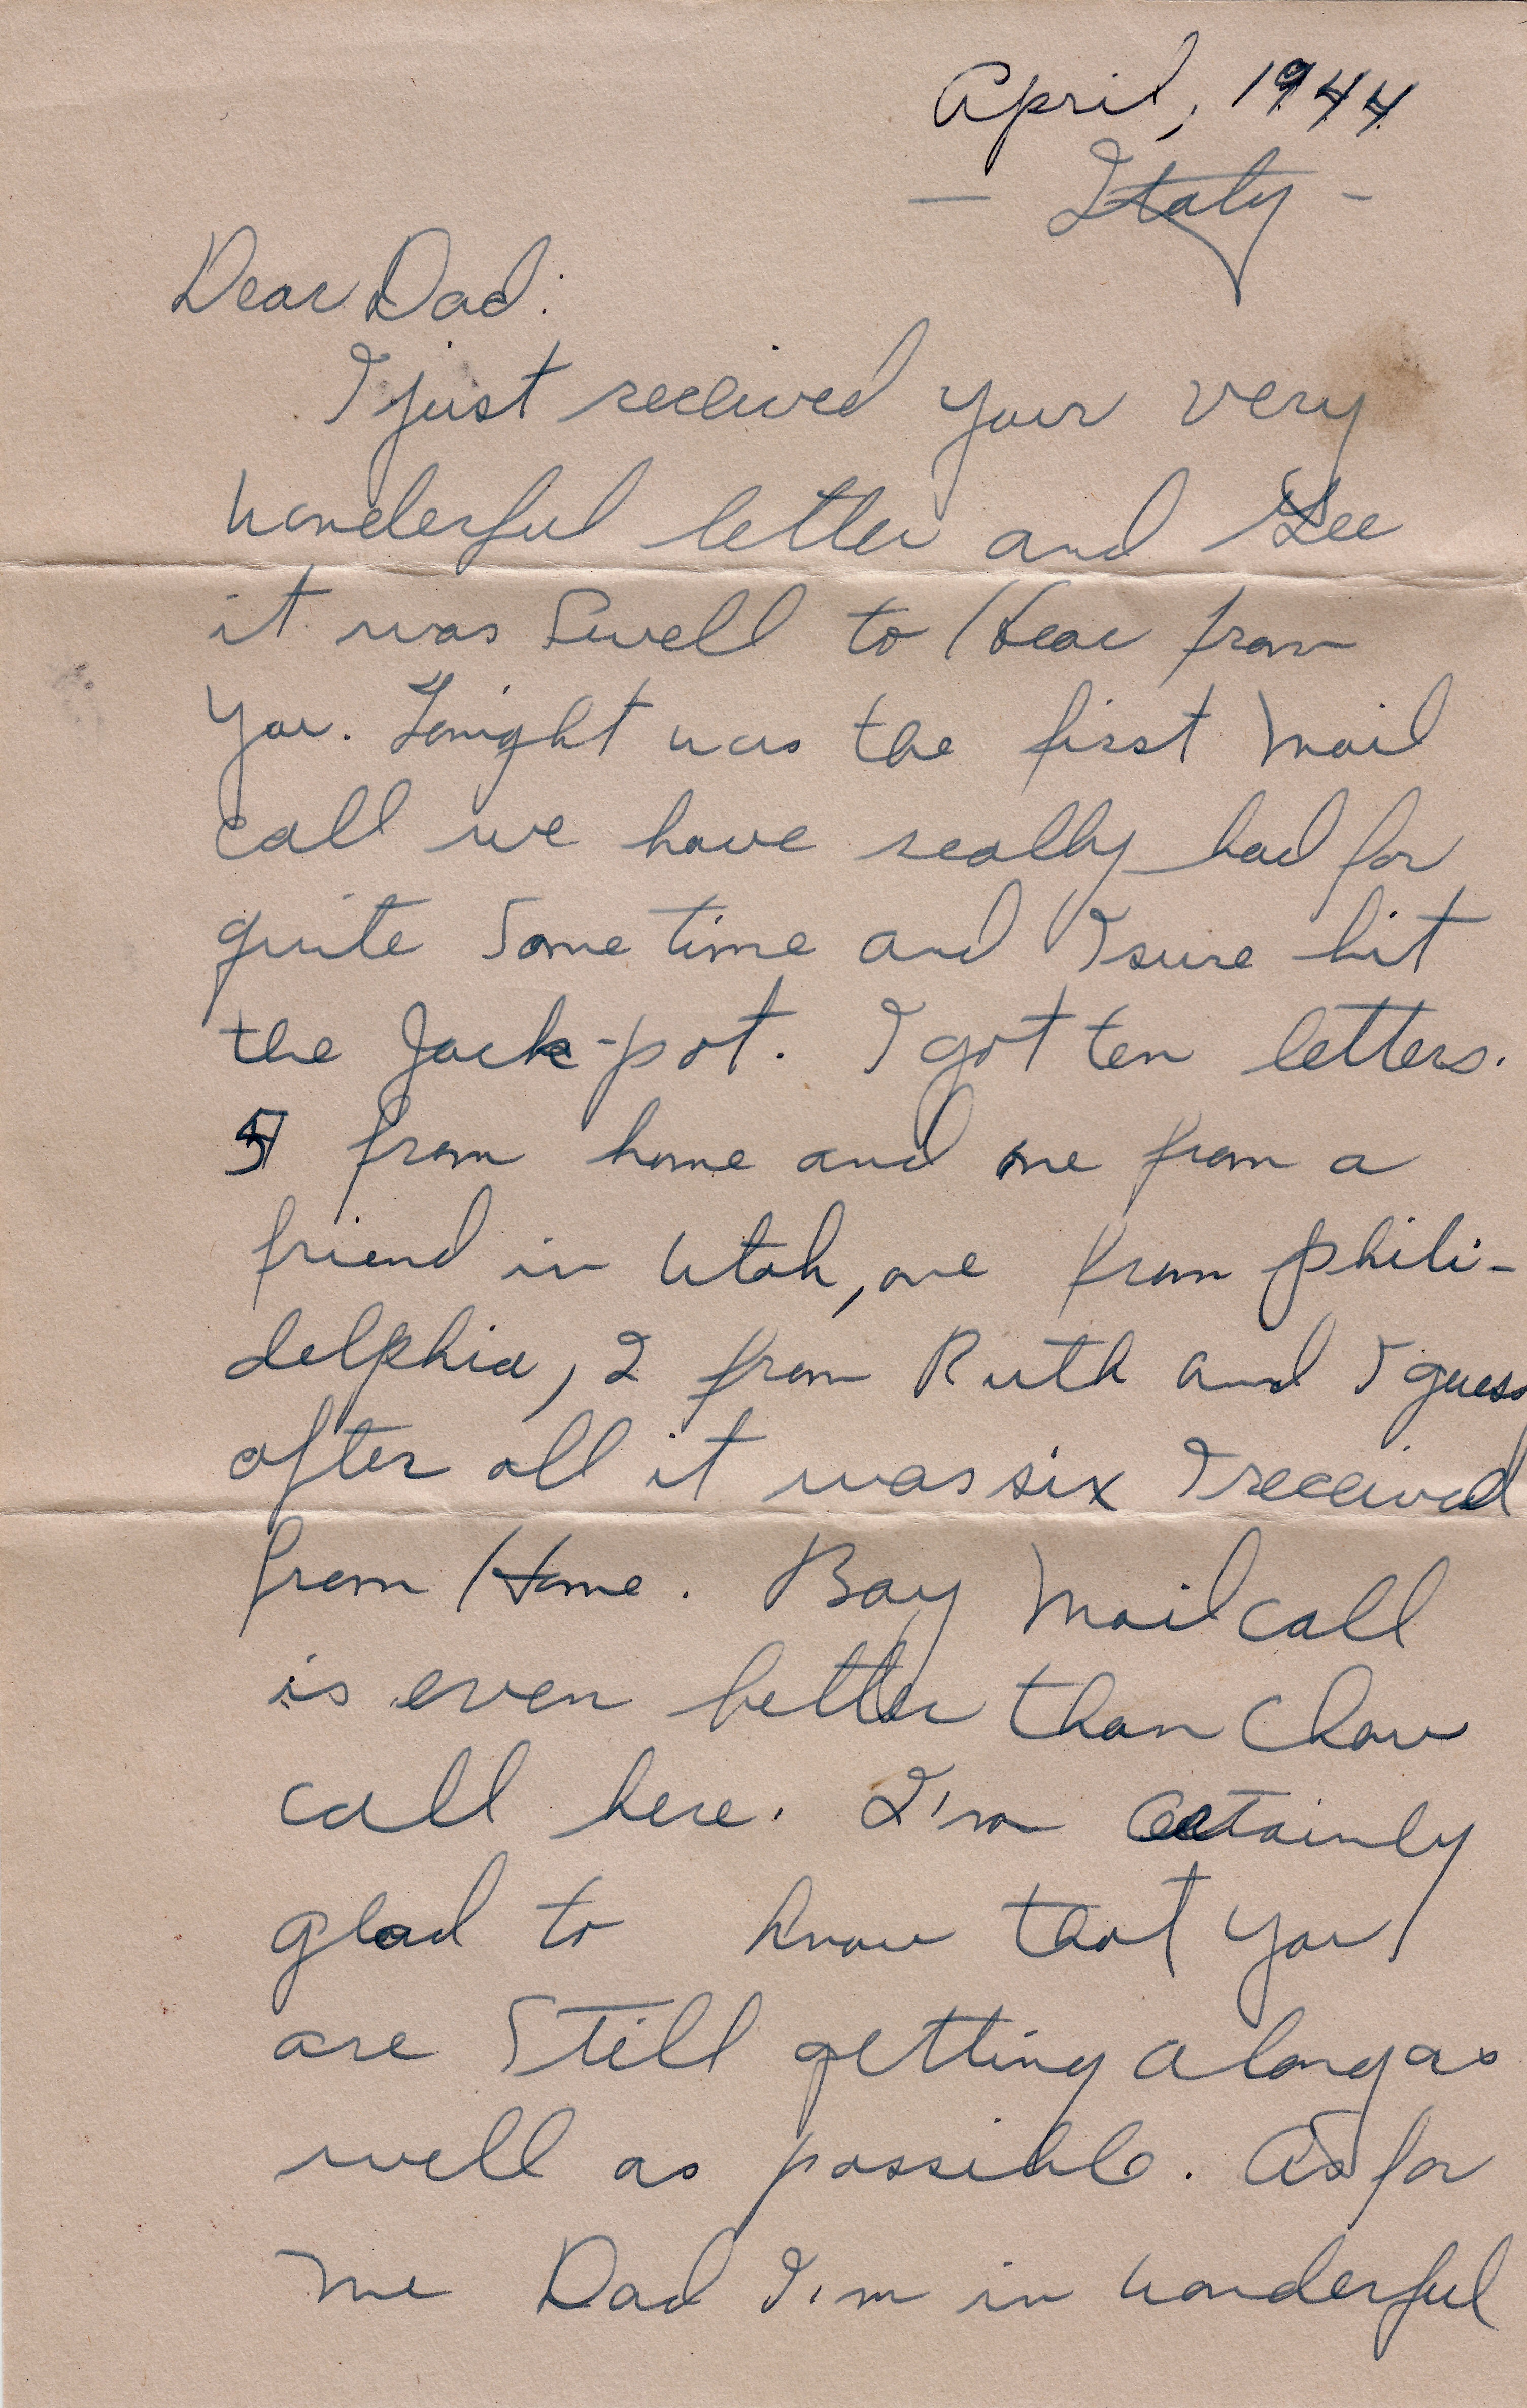 April, 1944
- Italy -
Dear Dad:
I just received your very
wonderful letter and Gee
it was Swell to Hear from
you. Tonight was the first Mail
call we have really had for
quite Some time and I sure hit
the Jack-pot. I got ten letters.
5 from home and one from a
friend in Utah, one from phili-
delphia, 2 from Ruth and I guess
after all it was six I received
from Home. Boy Mail call
is even better than Chow
call here. I'm Certainly
glad to know that you
are Still getting along as
well as possible. As for
me Dad I'm in wonderful